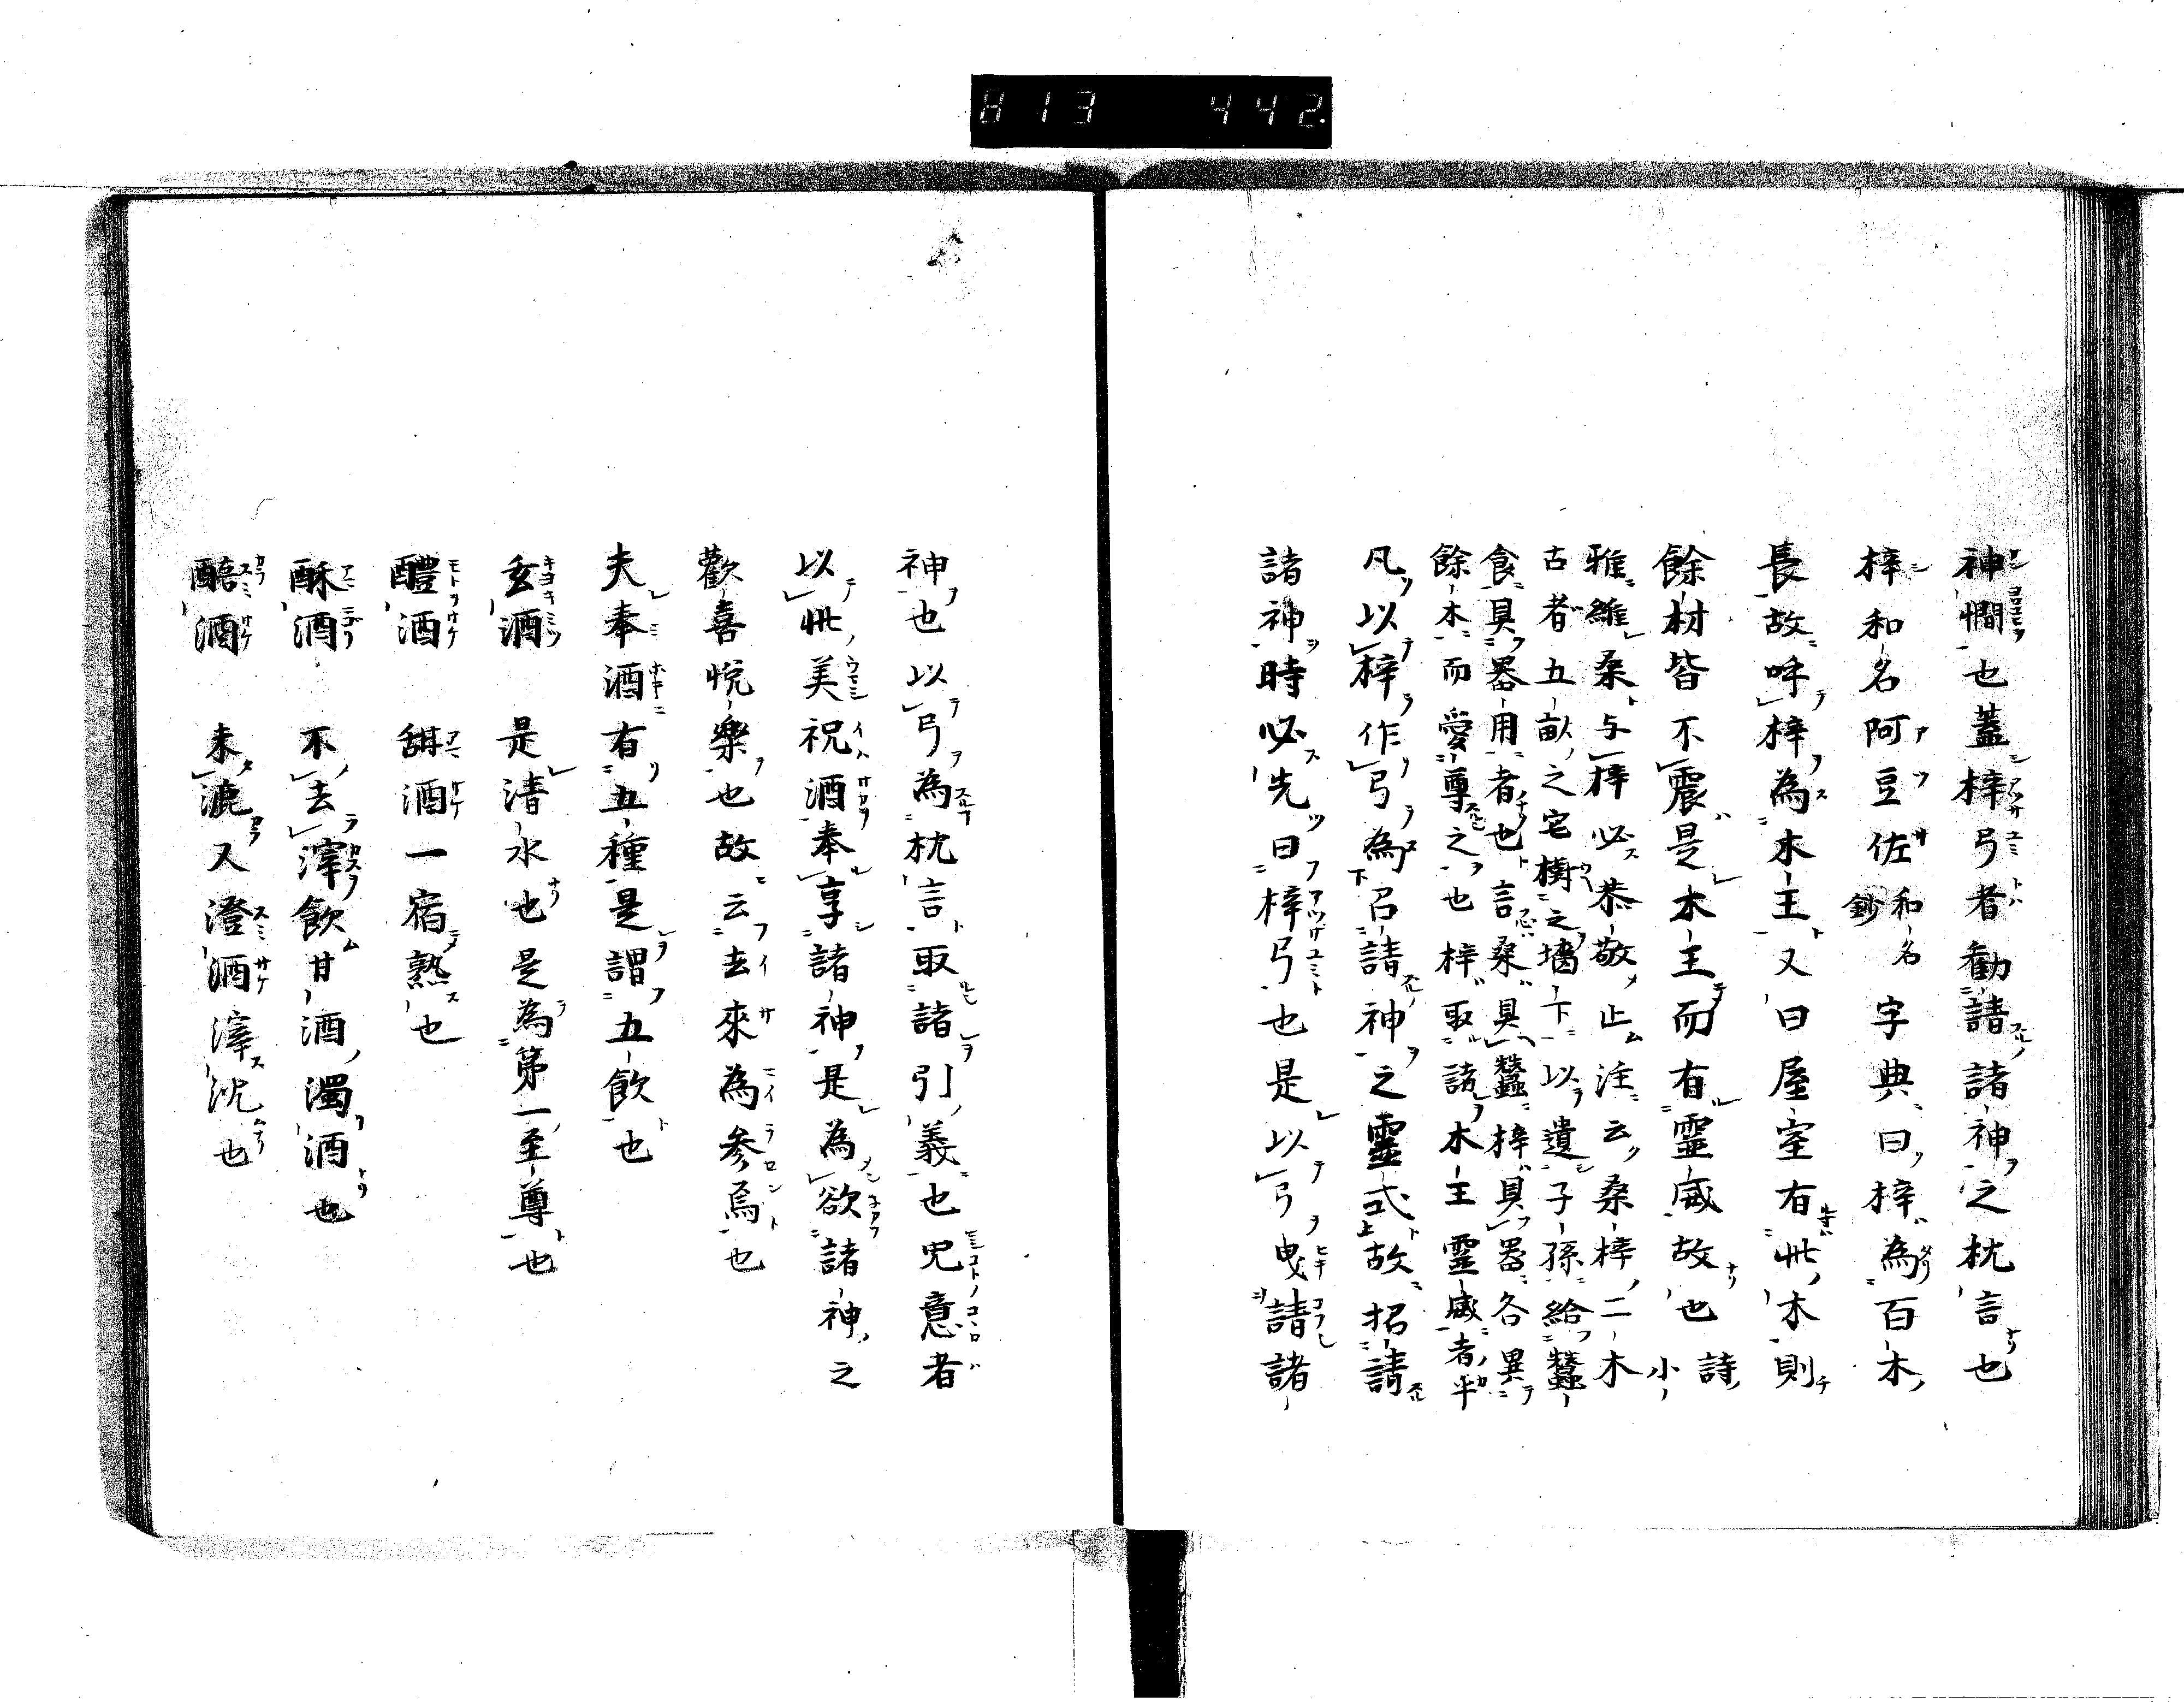 813 442.
神憪也蓋梓弓者勸請諸神之枕言也
梓和名阿豆佐和名鈔字典曰梓為百木
長故呼梓為木王又曰屋室有此木則
餘材皆不震是木王而有靈威故也詩小
雅維桑与梓必恭敬止注云桑梓二木
古者五畝之宅樹之墻下以遺子孫給蠶
食具器用者也言桑具蠶梓具器各異
餘木而愛尊之也梓取諸木王靈威者乎
凡以梓作弓為召請神之靈式故招請
諸神時必先曰梓弓也是以弓曳請諸
神也以弓為枕言取諸引義也兕意者
以此美祝酒奉享諸神是為欲諸神之
歡喜悅樂也故云去來為参烏也
夫奉酒有五種是謂五飲也
玄酒 是清水也是為第一至尊也
醴酒 甜酒一宿熟也
酥酒 不去滓飲甘酒濁酒也
醅酒 未漉又澄酒滓沈也